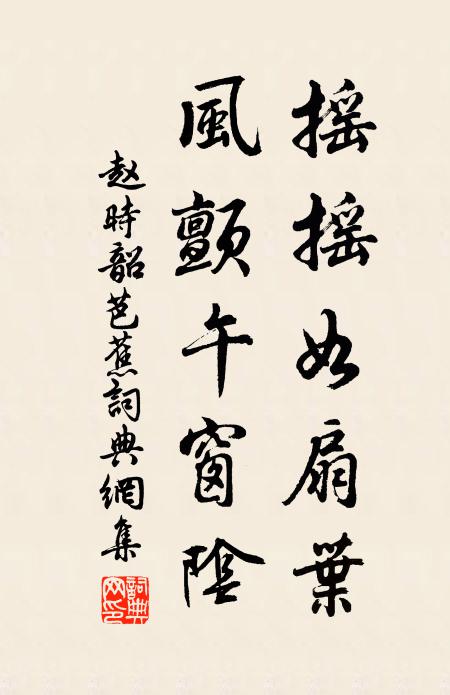 搖搖如扇葉
風顫午窗陰
趙時韶芭蕉詞典網集
詞典网印